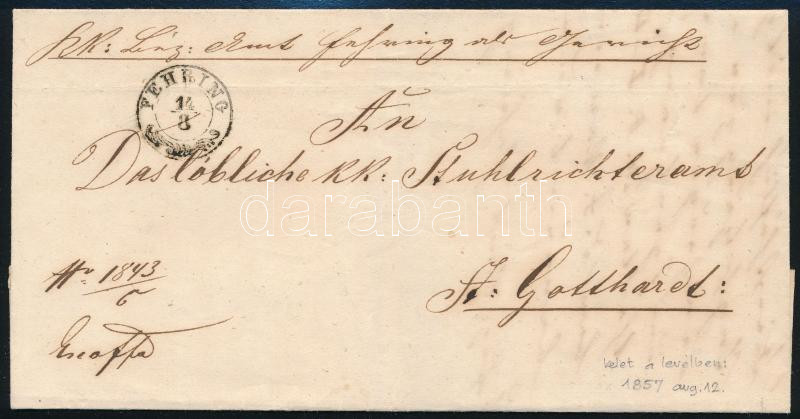 KK: Bez: Amt Fehring als Gericht
FEHRING
14
8
An
Das löbliche KK: Stuhlrichteramt
darabanth
No 1843
St: Gotthardt:
kelet a levélben:
1857 aug. 12.